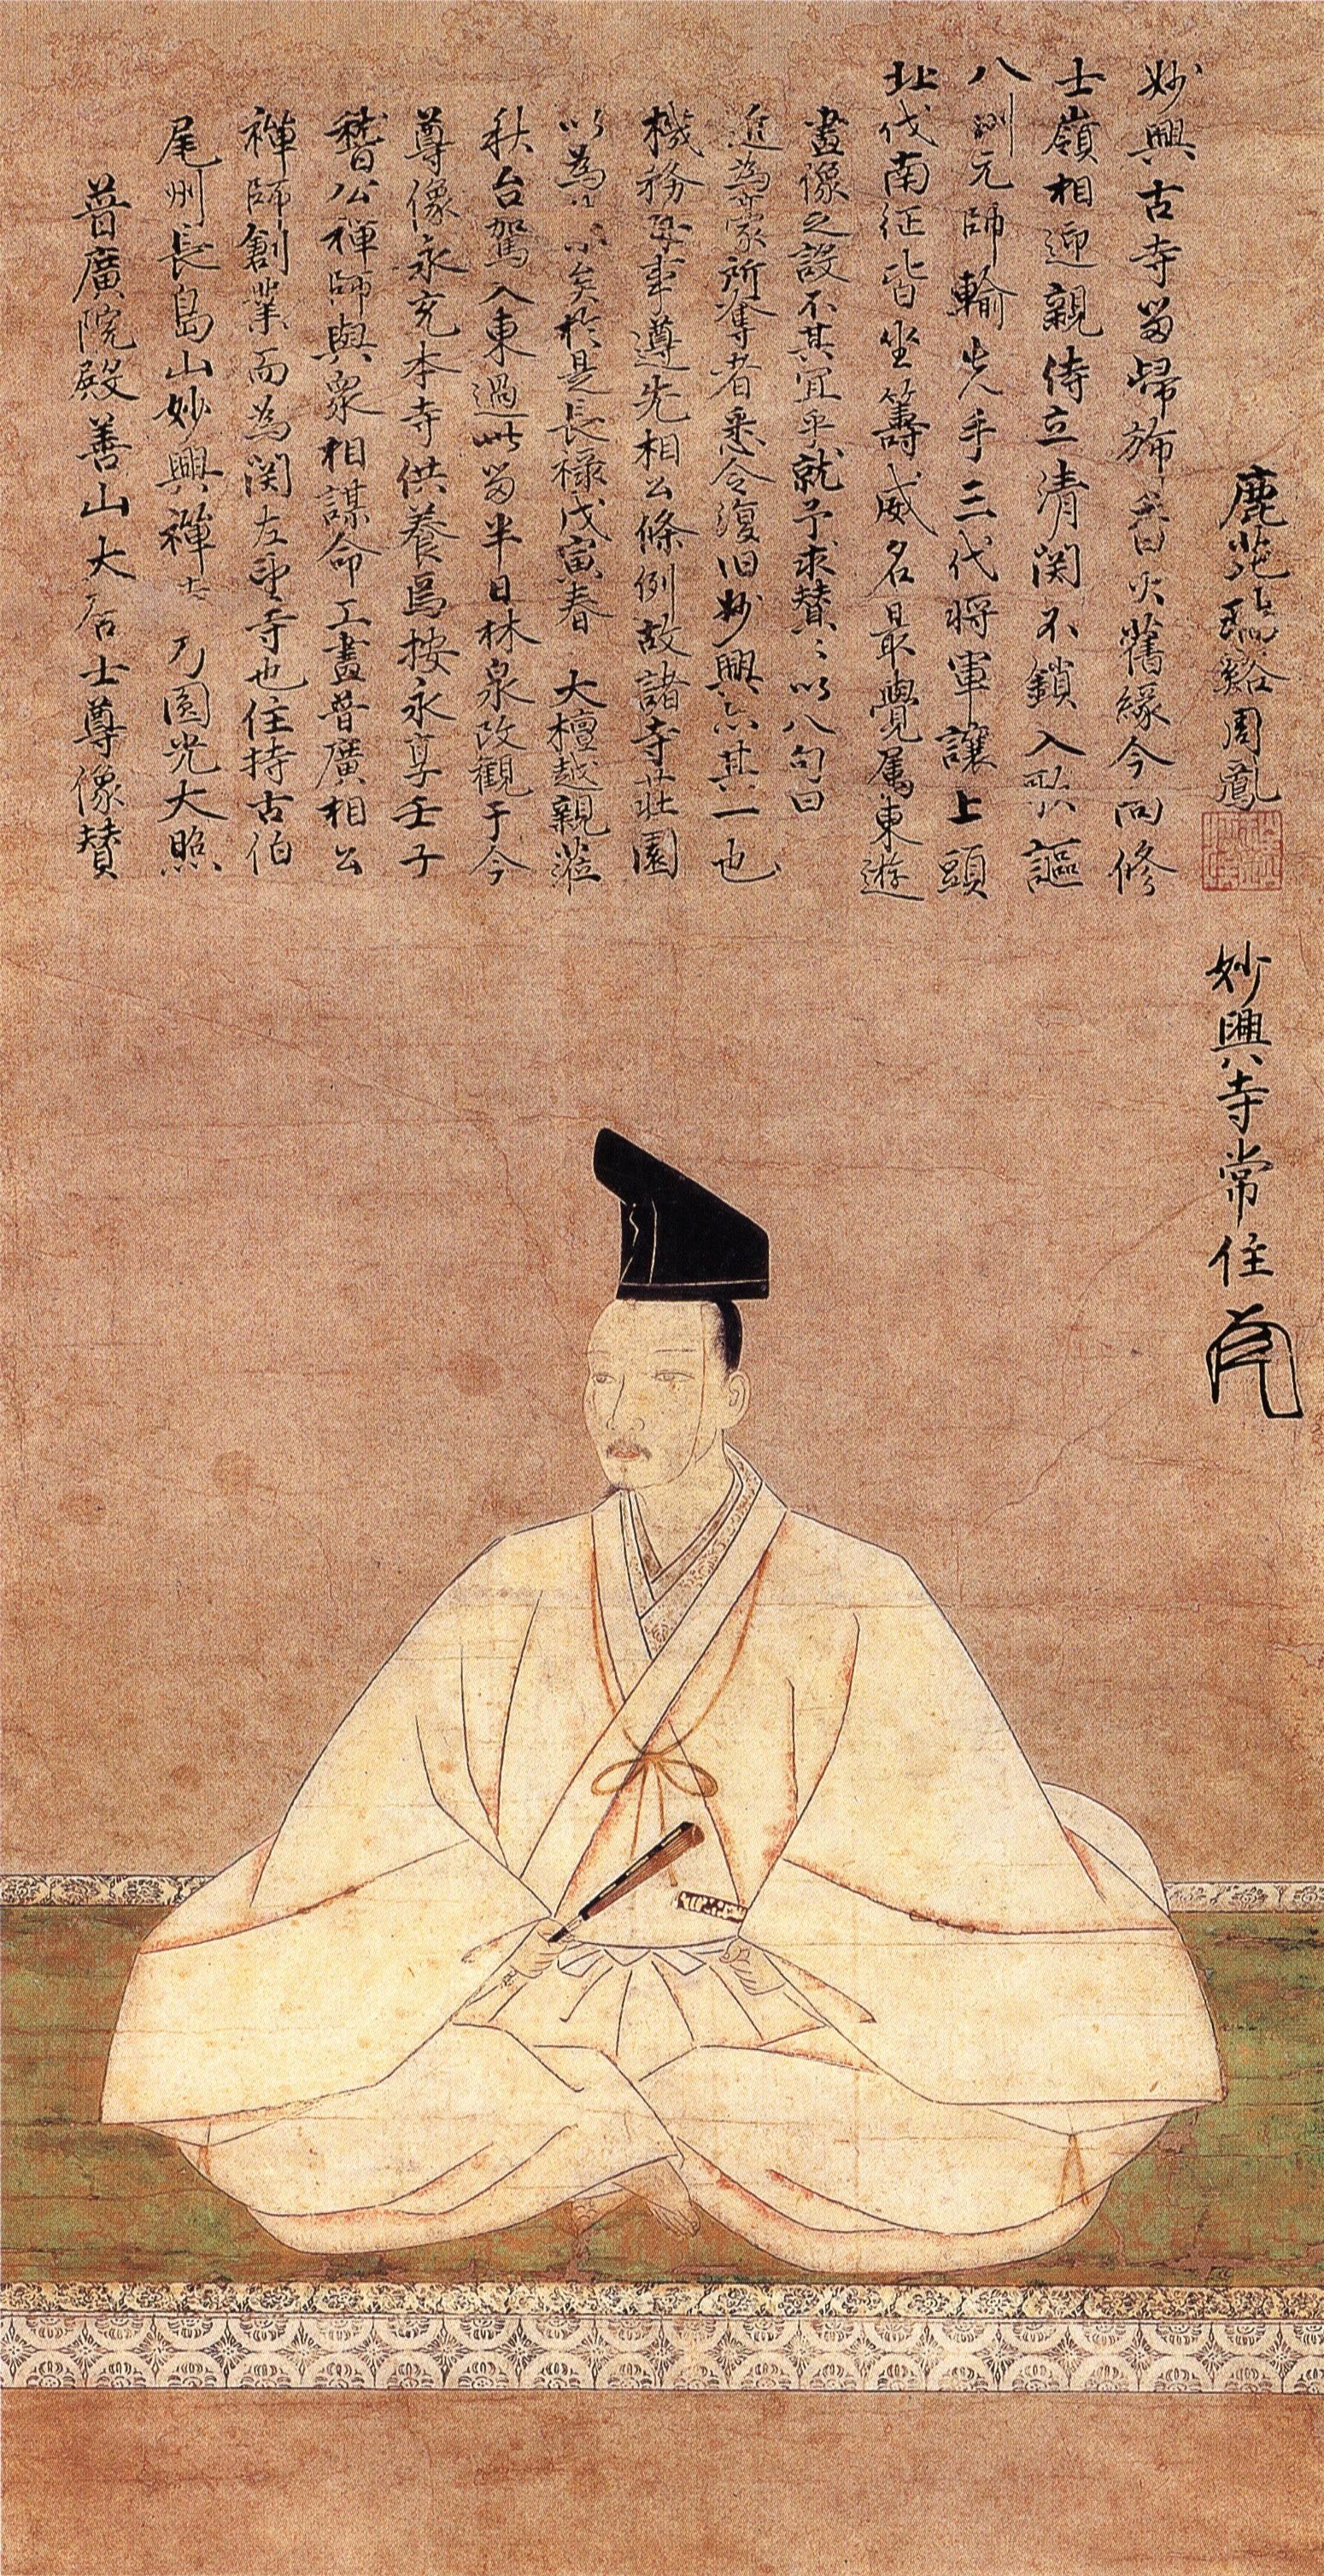 普廣院殿善山大居士尊像賛
尾州長島山妙興禪寺乃圓光大照
禪師創業而為関左望寺也住持古伯
稽公禪師與衆相謀命工畫普廣相公
尊像永充本寺供養焉按永享壬子
秋台駕入東過此留半日林泉改観于今
以為小矣於是長禄戊寅春大檀越親蒞
機務每事遵先相公條例故諸寺荘園
為豪所奪者悉令復旧妙興亦其一也
畫像之設不其宜乎就予求賛々以八句曰
北伐南征皆坐籌威名最覺属東遊
八州元帥輸先手三代将軍讓上頭
士嶺相迎親侍立清関不鎖入歌謳
妙興古寺留歸旆香火舊緣今尚修
鹿苑瑞谿周鳳
妙興寺常住